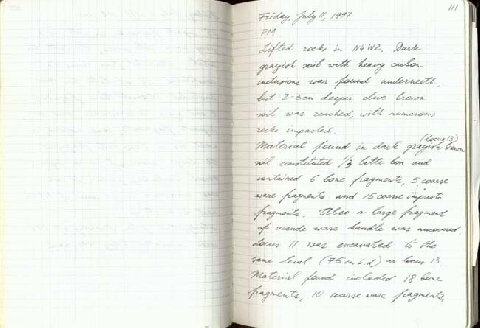 111
Friday, July 11, 1997
PM
Lifted rocks in N6W2. Dark
grayish soil with heavy carbon
inclusions was found underneath,
but 2-3cm deeper olive brown
soil was reached, with numerous
rocks impacted.
(Locus 13)
Material found in dark grayish brown
soil constituted 1/3 lotto box and
contained 6 bone fragments, 5 coarse
ware fragments and 15 coarse
fragments. Also a large fragment
of ware handle was uncovered
Locus 11 was excavated to the
same level as locus 13
Material found included 18 bone
fragments, 10 coarse ware fragments,